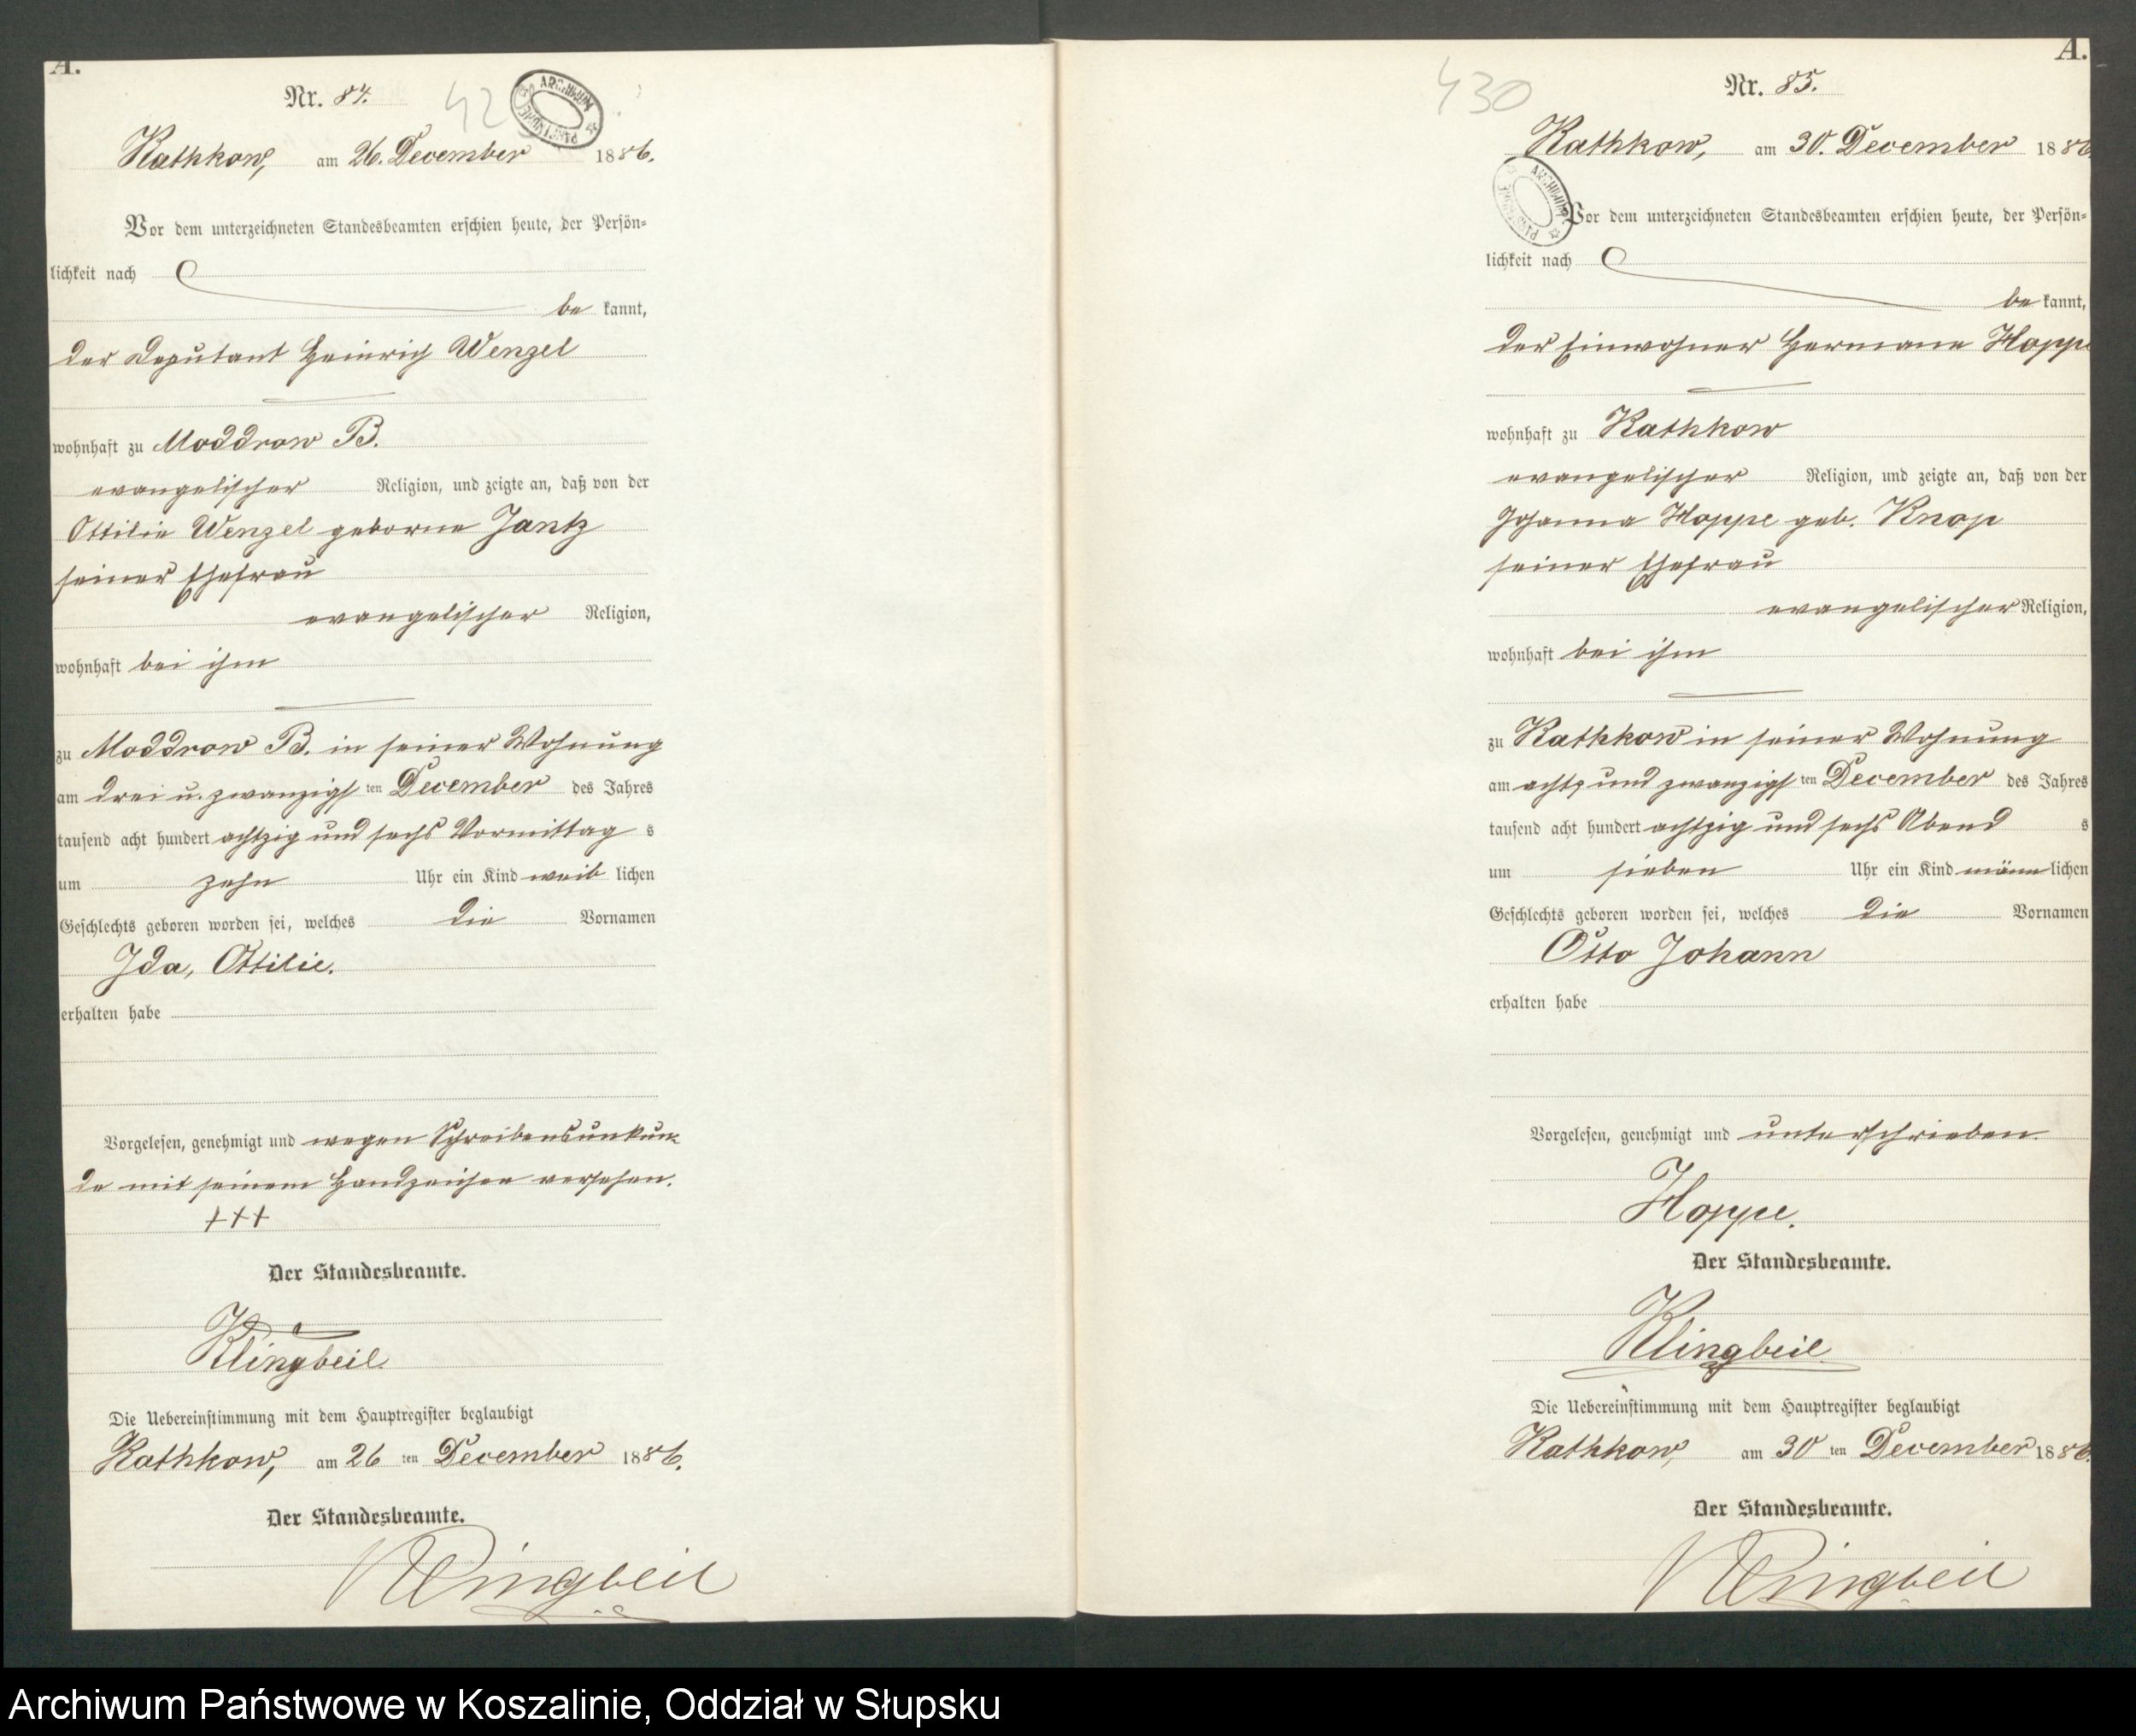 A.
Nr. 84.
Rathkow, am 26. December 1886.
Vor dem unterzeichneten Standesbeamten erschien heute, der Persön=
lichkeit nach
be kannt,
der Deputant Heinrich Wenzel
wohnhaft zu Moddrow B.
evangelischer Religion, und zeigte an, daß von der
Ottilie Wenzel geborne Jantz
seiner Ehefrau
evangelischer Religion,
wohnhaft bei ihm
zu Moddrow B. in seiner Wohnung
am drei u. zwanzigs ten December des Jahres
tausend acht hundert achtzig und sechs Vormittag s
um zehn Uhr ein Kind weib lichen
Geschlechts geboren worden sei, welches die Vornamen
Ida, Ottilie.
erhalten habe
Vorgelesen, genehmigt und wegen Schreibensunkun=
de mit seinem Handzeichen versehen.
+++
Der Standesbeamte.
Klingbeil
Die Uebereinstimmung mit dem Hauptregister beglaubigt
Rathkow, am 26 ten December 1886.
Der Standesbeamte.
Klingbeil
A.
430
Nr. 85.
Rathkow, am 30. December 1886
ARCHIWUM PAŃSTWOWE
Vor dem unterzeichneten Standesbeamten erschien heute, der Persön=
lichkeit nach
be kannt,
der Einwohner Hermann Hoppe
wohnhaft zu Rathkow
evangelischer Religion, und zeigte an, daß von der
Johanna Hoppe geb. Knop
seiner Ehefrau
evangelischer Religion,
wohnhaft bei ihm
zu Rathkow in seiner Wohnung
am acht und zwanzigs ten December des Jahres
tausend acht hundert achtzig und sechs Abend s
um sieben Uhr ein Kind männ lichen
Geschlechts geboren worden sei, welches die Vornamen
Otto Johann
erhalten habe
Vorgelesen, genehmigt und unterschrieben.
Hoppe.
Der Standesbeamte.
Klingbeil
Die Uebereinstimmung mit dem Hauptregister beglaubigt
Rathkow, am 30 ten December 1886.
Der Standesbeamte.
Klingbeil
Archiwum Państwowe w Koszalinie, Oddział w Słupsku